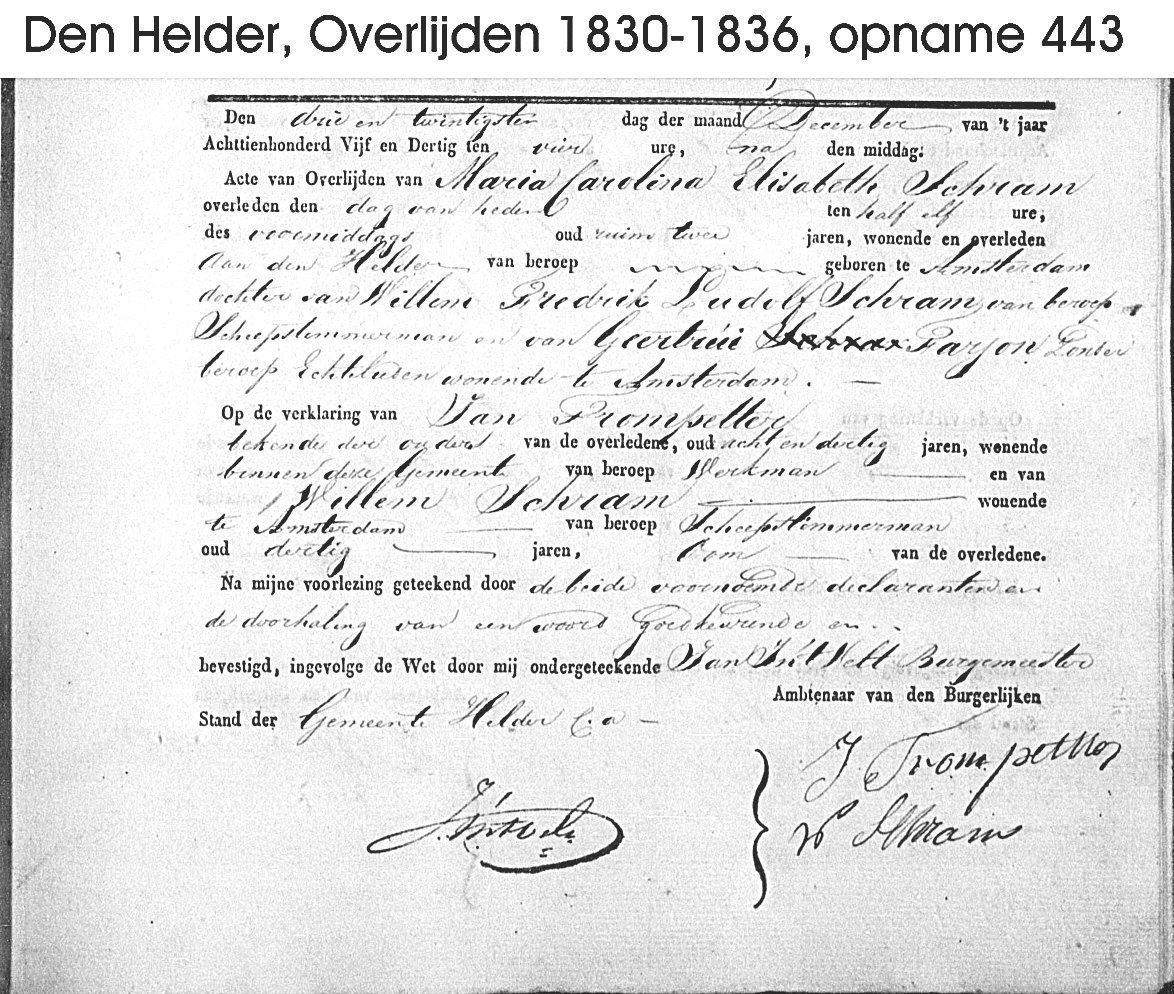 Den Helder, Overlijden 1830-1836, opname 443
Den drie en twintigsten dag der maand December van 't jaar
Achttienhonderd Vijf en Dertig ten vier ure, na den middag:
Acte van Overlijden van Maria Carolina Elisabeth Schram
overleden den dag van heden ten half elf ure,
des voormiddags oud ruim twee jaren, wonende en overleden
aan den Helder van beroep geboren te Amsterdam
dochter van Willem Fredrik Ludolf Schram, van beroep
Scheepstimmerman en van Geertrui Farjon Zonder
beroep Echtelieden wonende te Amsterdam.
Op de verklaring van Jan Trompetter
bekende der ouders van de overledene, oud acht en dertig jaren, wonende
binnen deze Gemeente van beroep Werkman en van
Willem Schram wonende
te Amsterdam van beroep Scheepstimmerman
oud dertig jaren, Oom van de overledene.
Na mijne voorlezing geteekend door de beide voornoemde declaranten en
de doorhaling van een woord goedkeurende en
bevestigd, ingevolge de Wet door mij ondergeteekende Jan In't Velt Burgemeester
Ambtenaar van den Burgerlijken
Stand der Gemeente Helder C.a
J Trompetter
J. In't Velt
W Schram